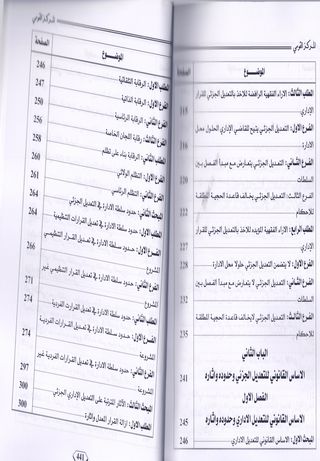 المركز القومي
الموضوع
الصفحة
المطلب الثالث: الاراء الفقهية الرافضة للاخذ بالتعديل الجزئي للقرار
الإداري
الفرع الاول: التعديل الجزئي يتيح للقاضي الإداري الحلول محل
الادارة
الفرع الثاني: التعديل الجزئي يتعارض مع مبدأ الفصل بين
السلطات
الفرع الثالث: التعديل الجزئي يخالف قاعدة الحجية المطلقة
للاحكام
222
المطلب الرابع: الاراء الفقهية المؤيدة للاخذ بالتعديل الجزئي للقرار
الإداري
227
الفرع الاول: لا يتضمن التعديل الجزئي حلولا محل الادارة
228
الفرع الثاني: التعديل الجزئي لايتعارض مع مبدأ الفصل بين
السلطات
232
الفرع الثالث: التعديل الجزئي لايخالف قاعدة الحجية المطلقة
للاحكام
235
الباب الثاني
الاساس القانوني للتعديل الجزئي وحدوده واثاره
241
الفصل الاول
الاساس القانوني للتعديل الاداري وحدوده واثاره
245
المبحث الاول: الاساس القانوني للتعديل الاداري
246
المركز القومي
الموضوع
الصفحة
المطلب الاول: الرقابة التلقائية
246
الفرع الاول: الرقابة الذاتية
247
الفرع الثاني: الرقابة الرئاسية
250
الفرع الثالث: رقابة اللجان الخاصة
256
المطلب الثاني: الرقابة بناء على تظلم
258
الفرع الاول: التظلم الولائي
260
الفرع الثاني: التظلم الرئاسي
261
المبحث الثاني: حدود سلطة الادارة في التعديل الجزئي
264
المطلب الاول: حدود سلطة الادارة في تعديل القرارات التنظيمية
الفرع الاول: حدود سلطة الادارة في تعديل القرار التنظيمي
المشروع
266
الفرع الثاني: حدود سلطة الادارة في تعديل القرار التنظيمي غير
المشروع
271
المطلب الثاني: حدود سلطة الادارة في تعديل القرارات الفردية
274
الفرع الاول: حدود سلطة الادارة في تعديل القرارات الفردية
المشروعة
274
الفرع الثاني: حدود سلطة الادارة في تعديل القرارات الفردية غير
المشروعة
297
المبحث الثالث: الاثار المترتبة على التعديل الإداري الجزئي
300
المطلب الاول: ازالة القرار المعدل واثاره
300
441